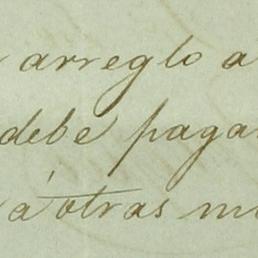 arreglo a
debe pagar
á otras m